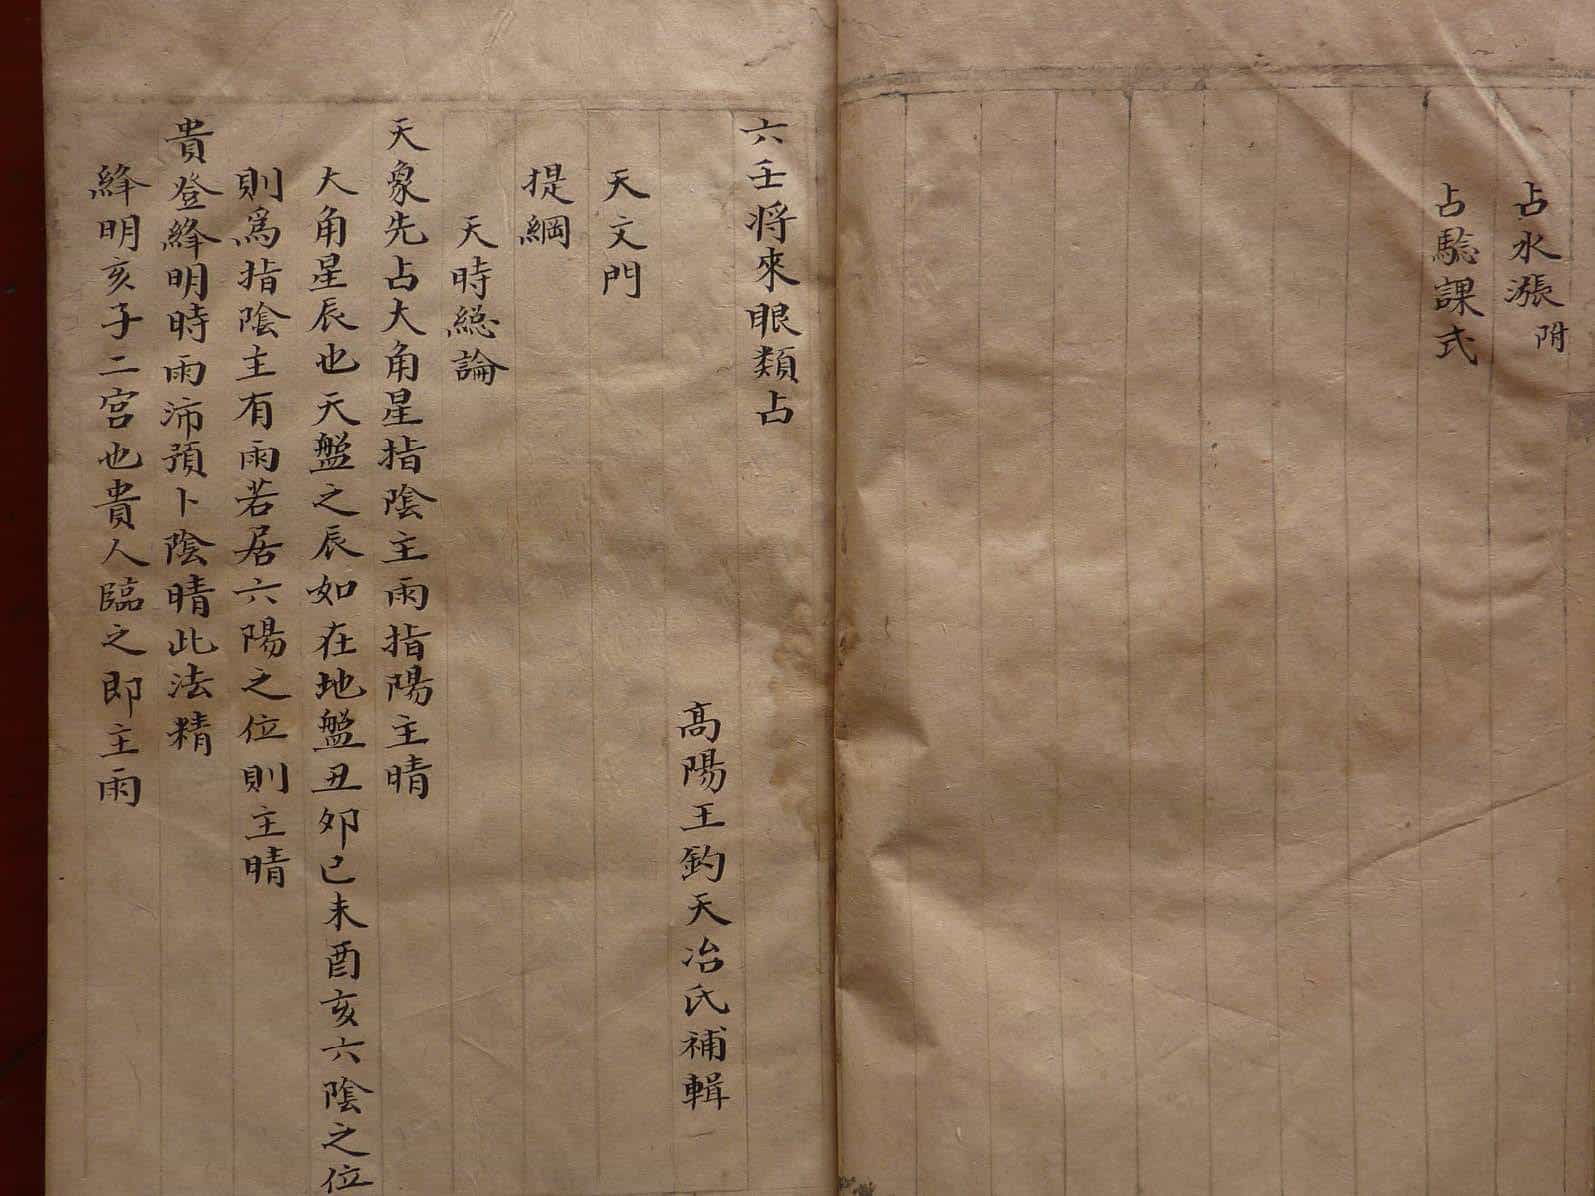 占水漲 附
占騐課式
六壬將來眼類占
高陽王鈞天冶氏補輯
天文門
提綱
天時総論
天象先占大角星指陰主雨指陽主晴
大角星辰也天盤之辰如在地盤丑夘巳未酉亥六陰之位
則爲指陰主有雨若居六陽之位則主晴
貴登絳明時雨沛預卜陰晴此法精
絳明亥子二宮也貴人臨之即主雨